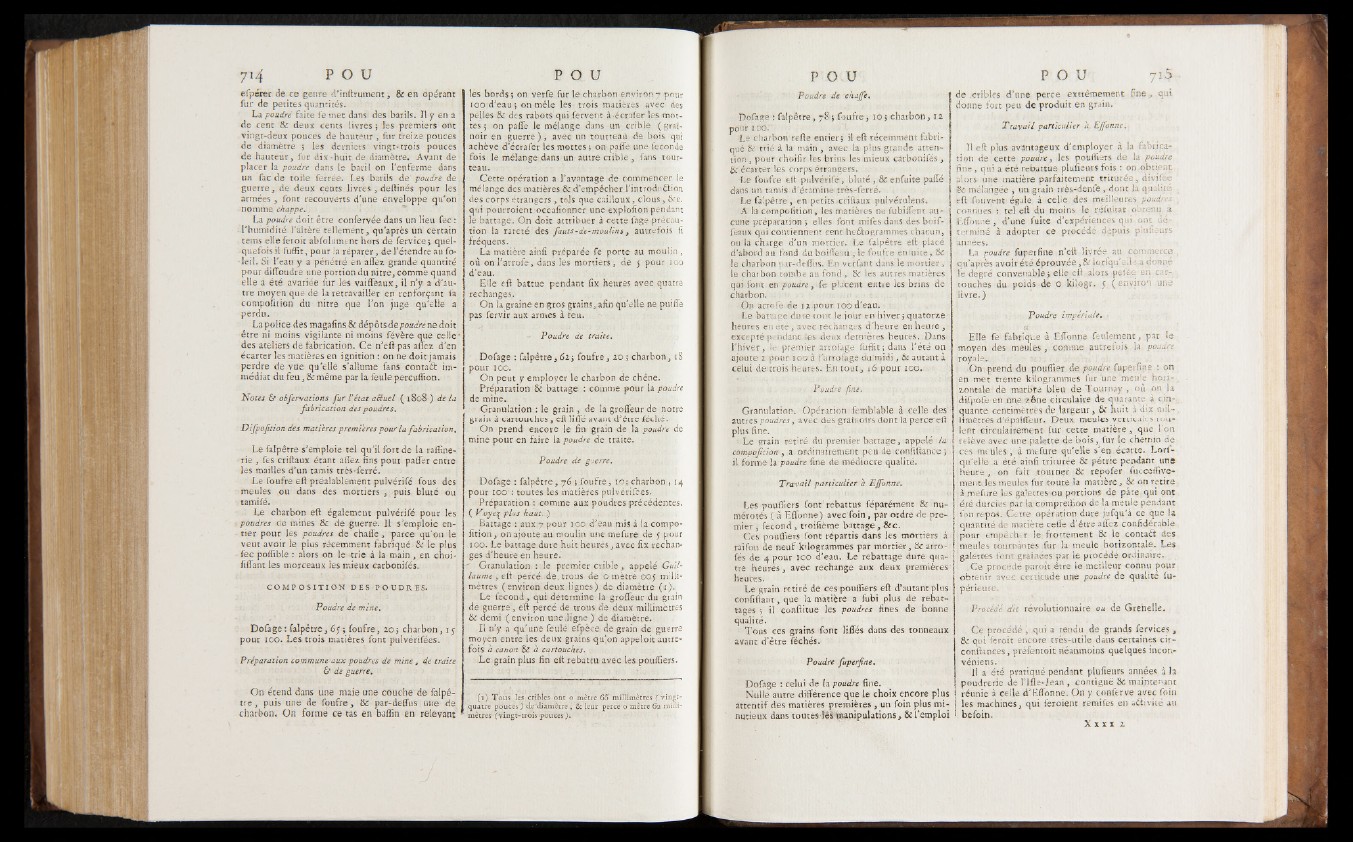 714 P O U
eſpérer de ce genre d'inſtrument, & en opérant
ſur de petites quantités.
La poudre faite ſe met dans des barils. Il y en a
de cent & deux cents livres ; les premiers ont
vingt-deux pouces de hauteur, ſur treize pouces
de diamètre ; les derniers vingt-trois pouces
de hauteur, ſur dix-huit de diamètre. Avant de
placer la poudre dans le baril on l'enferme dans
un ſac de toile ſerrée. Les barils de poudre de
guerre, de deux cents livres, deſtinés pour les
armées, ſont recouverts d'une enveloppe qu'on
nomme chappe.
La poudre doit être conſervée dans un lieu ſec :
l'humidité l'altère tellement, qu'après un certain
tems elle ſeroit abſolument hors de ſervice ; quel-
quefois il ſuffit, pour la réparer, de l'étendre au ſo-
leil. Si l'eau y a pénétré en aſſez grande quantité
pour diſſoudre une portion du nitre, comme quand
elle a été avariée ſur les vaiſſeaux, il n'y a d'au-
tre moyen que de la retravailler en renforçant la
compoſition du nitre que l'on juge qu'elle a
perdu.
La police des magaſins & dépôts de poudre ne doit
être ni moins vigilante ni moins ſévère que celle
des ateliers de fabrication. Ce n'eſt pas aſſez d'en
écarter les matières en ignition : on ne doit jamais
perdre de vue qu'elle s'allume ſans contact im-
médiat du feu, & même par la ſeule percuſſion.
Notes & obſervations ſur l'état actuel (1808) de la
fabrication des poudres.
Diſpoſition des matières premières pour la fabrication.
Le ſalpêtre s'emploie tel qu'il ſort de la raffine-
rie, ſes criſtaux étant aſſez fins pour paſſer entre
les mailles d'un tamis très-ſerré.
Le ſoufre eſt préalablement pulvériſé ſous des
meules ou dans des mortiers, puis bluté ou
tamiſé.
Le charbon eſt également pulvériſé pour les
poudres de mines & de guerre. Il s'emploie en-
tier pour les poudres de chaſſe, parce qu'on le
veut avoir le plus récemment fabriqué & le plus
ſec poſſible : alors on le trie à la main, en choi-
ſiſſant les morceaux les mieux carboniſés.
COMPOSITION DES POUDRES.
Poudre de mine.
Doſage : ſalpêtre, 65 ; ſoufre, 20 ; charbon, 15
pour 100. Les trois matières ſont pulvériſées.
Préparation commune aux poudres de mine, de traite
& de guerre.
On étend dans une maie une couche de ſalpê-
tre, puis une de ſoufre, & par-deſſus une de
charbon. On forme ce tas en baſſin en relevant
P O U
les bords ; on verſe ſur le charbon environ 7 pour
100 d'eau ; on mêle les trois matières avec des
pelles & des rabots qui ſervent à écraſer les mot-
tes ; on paſſe le mélange dans un crible (grai-
noir en guerre), avec un tourteau de bois qui
achève d'écraſer les mottes ; on paſſe une ſeconde
fois le mélange dans un autre crible, ſans tour-
teau.
Cette opération a l'avantage de commencer le
mélange des matières & d'empêcher l'introduction
des corps étrangers, tels que cailloux, clous, &c.
qui pourroient occaſionner une exploſion pendant
le battage. On doit attribuer à cette ſage précau-
tion la rareté des ſauts-de-moulins, autrefois ſi
fréquens.
La matière ainſi préparée ſe porte au moulin,
où on l'arroſe, dans les mortiers, de 5 pour 100
d'eau.
Elle eſt battue pendant ſix heures avec quatre
rechanges.
On la graine en gros grains, afin qu'elle ne puiſſe
pas ſervir aux armes à feu.
Poudre de traite.
Doſage : ſalpêtre, 62 ; ſoufre, 20 ; charbon, 18
pour 100.
On peut y employer le charbon de chêne.
Préparation & battage : comme pour la poudre
de mine.
Granulation : le grain, de la groſſeur de notre
grain à cartouches, eſt liſſé avant d'être ſéché.
On prend encore le fin grain de la poudre de
mine pour en faire la poudre de traite.
Poudre de guerre.
Doſage : ſalpêtre, 76 ; ſoufre, 10 ; charbon, 14
pour 100 : toutes les matières pulvériſées.
Préparation : comme aux poudres précédentes.
(Voyez plus haut.)
Battage : aux 7 pour 100 d'eau mis à la compo-
ſition, on ajoute au moulin une meſure de 5 pour
100. Le battage dure huit heures, avec ſix rechan-
ges d'heure en heure.
Granulation : le premier crible, appelé Guil-
laume, eſt percé de trous de 0 mètre 005 milli-
mètres (environ deux lignes) de diamètre (1).
Le ſecond, qui détermine la groſſeur du grain
de guerre, eſt percé de trous de deux millimètres
& demi (environ une ligne) de diamètre.
Il n'y a qu'une ſeule eſpèce de grain de guerre
moyen entre les deux grains qu'on appeloit autre-
fois à canon & à cartouches.
Le grain plus fin eſt rebattu avec les pouſſiers.
(1) Tous les cribles ont 0 mètre 65 millimètres (vingt-
quatre pouces) de diamètre, & leur perce 0 mètre 62 milli-
mètres (vingt-trois pouces).
P O U
Poudre de chaſſe.
Doſage : ſalpêtre, 78 ; ſoufre, 10 ; charbon, 12
pour 100.
Le charbon reſte entier ; il eſt récemment fabri-
qué & trié à la main, avec la plus grande atten-
tion, pour choiſir les brins les mieux carboniſés,
& écarter les corps étrangers.
Le ſoufre eſt pulvériſé, bluté, & enſuite paſſé
dans un tamis d'étamine très-ſerré.
Le ſalpêtre, en petits criſtaux pulvérulens.
A la compoſition, les matières ne ſubiſſent au-
cune préparation ; elles ſont miſes dans des boiſ-
ſeaux qui contiennent cent hectogrammes chacun,
ou la charge d'un mortier. Le ſalpêtre eſt placé
d'abord au fond du boiſſeau, le ſoufre enſuite, &
le charbon par-deſſus. En verſant dans le mortier,
le charbon tombe au fond, & les autres matières
qui ſont en poudre, ſe placent entre les brins de
charbon.
On arroſe de 12 pour 100 d'eau.
Le battage dure tout le jour en hiver ; quatorze
heures en été, avec rechanges d'heure en heure,
excepté pendant les deux dernières heures. Dans
l'hiver, le premier arroſage ſuffit ; dans l'été on
ajoute 2 pour 100 à l'arroſage du midi, & autant à
celui de trois heures. En tout, 16 pour 100.
Poudre fine.
Granulation. Opération ſemblable à celle des
autres poudres, avec des grainoirs dont la perce eſt
plus fine.
Le grain retiré du premier battage, appelé la
compoſition, a ordinairement peu de conſiſtance ;
il forme la poudre fine de médiocre qualité.
Travail particulier à Eſſonne.
Les pouſſiers ſont rebattus ſéparément & nu-
mérotés (à Eſſonne) avec ſoin, par ordre de pre-
mier, ſecond, troiſième battage, &c.
Ces pouſſiers ſont répartis dans les mortiers à
raiſon de neuf kilogrammes par mortier, & arro-
ſés de 4 pour 100 d'eau. Le rebattage dure qua-
tre heures, avec rechange aux deux premières
heures.
Le grain retiré de ces pouſſiers eſt d'autant plus
conſiſtant, que la matière a ſubi plus de rebat-
tages ; il conſtitue les poudres fines de bonne
qualité.
Tous ces grains ſont liſſés dans des tonneaux
avant d'être ſéchés.
Poudre ſuperfine.
Doſage : celui de la poudre fine.
Nulle autre différence que le choix encore plus
attentif des matières premières, un ſoin plus mi-
nutieux dans toutes les manipulations, & l'emploi
P O U 715
de cribles d'une perce extrêmement fine, qui
donne fort peu de produit en grain.
Travail particulier à Eſſonne.
Il eſt plus avantageux d'employer à la fabrica-
tion de cette poudre, les pouſſiers de la poudre
fine, qui a été rebattue pluſieurs fois : on obtient
alors une matière parfaitement triturée, diviſée
& mélangée, un grain très-denſe, dont la qualité
eſt ſouvent égale à celle des meilleures poudres
connues : tel eſt du moins le réſultat obtenu à
Eſſonne, d'une ſuite d'expériences qui ont dé-
terminé à adopter ce procédé depuis pluſieurs
années.
La poudre ſuperfine n'eſt livrée au commerce
qu'après avoir été éprouvée, & lorſqu'elle a donné
le degré convenable ; elle eſt alors pesée en car-
touches du poids de 0 kilogr. 5 (environ une
livre.)
Poudre impériale.
Elle ſe fabrique à Eſſonne ſeulement, par le
moyen des meules, comme autrefois la poudre
royale.
On prend du pouſſier de poudre ſuperfine : on
en met trente kilogrammes ſur une meule hori-
zontale de marbre bleu de Tournay, où on la
diſpoſe en une zône circulaire de quarante à cin-
quante centimètres de largeur, & huit à dix mil-
limètres d'épaiſſeur. Deux meules verticales rou-
lent circulairement ſur cette matière, que l'on
relève avec une palette de bois, ſur le chemin de
ces meules, à meſure qu'elle s'en écarte. Lorſ-
qu'elle a été ainſi triturée & pétrie pendant une
heure, on fait repoſer ſucceſſive-
ment les meules ſur toute la matière, & on retire
à meſure les galettes ou portions de pâte qui ont
été durcies par la compreſſion de la meule pendant
ſon repos. Cette opération dure juſqu'à ce que la
quantité de matière ceſſe d'être aſſez conſidérable
pour empêcher le frottement & le contact des
meules tournantes ſur la meule horizontale. Les
galettes ſont grainées par le procédé ordinaire.
Ce procédé paroît être le meilleur connu pour
obtenir avec certitude une poudre de qualité ſu-
périeure.
Procédé dit révolutionnaire ou de Grenelle.
Ce procédé, qui a rendu de grands ſervices,
& qui ſeroit encore très-utile dans certaines cir-
conſtances, préſentoit néanmoins quelques incon-
véniens.
Il a été pratiqué pendant pluſieurs années à la
poudrerie de l'Iſle-Jean, contiguë & maintenant
réunie à celle d'Eſſonne. On y conſerve avec ſoin
les machines, qui ſeroient remiſes en activité au
beſoin.
X x x x 2